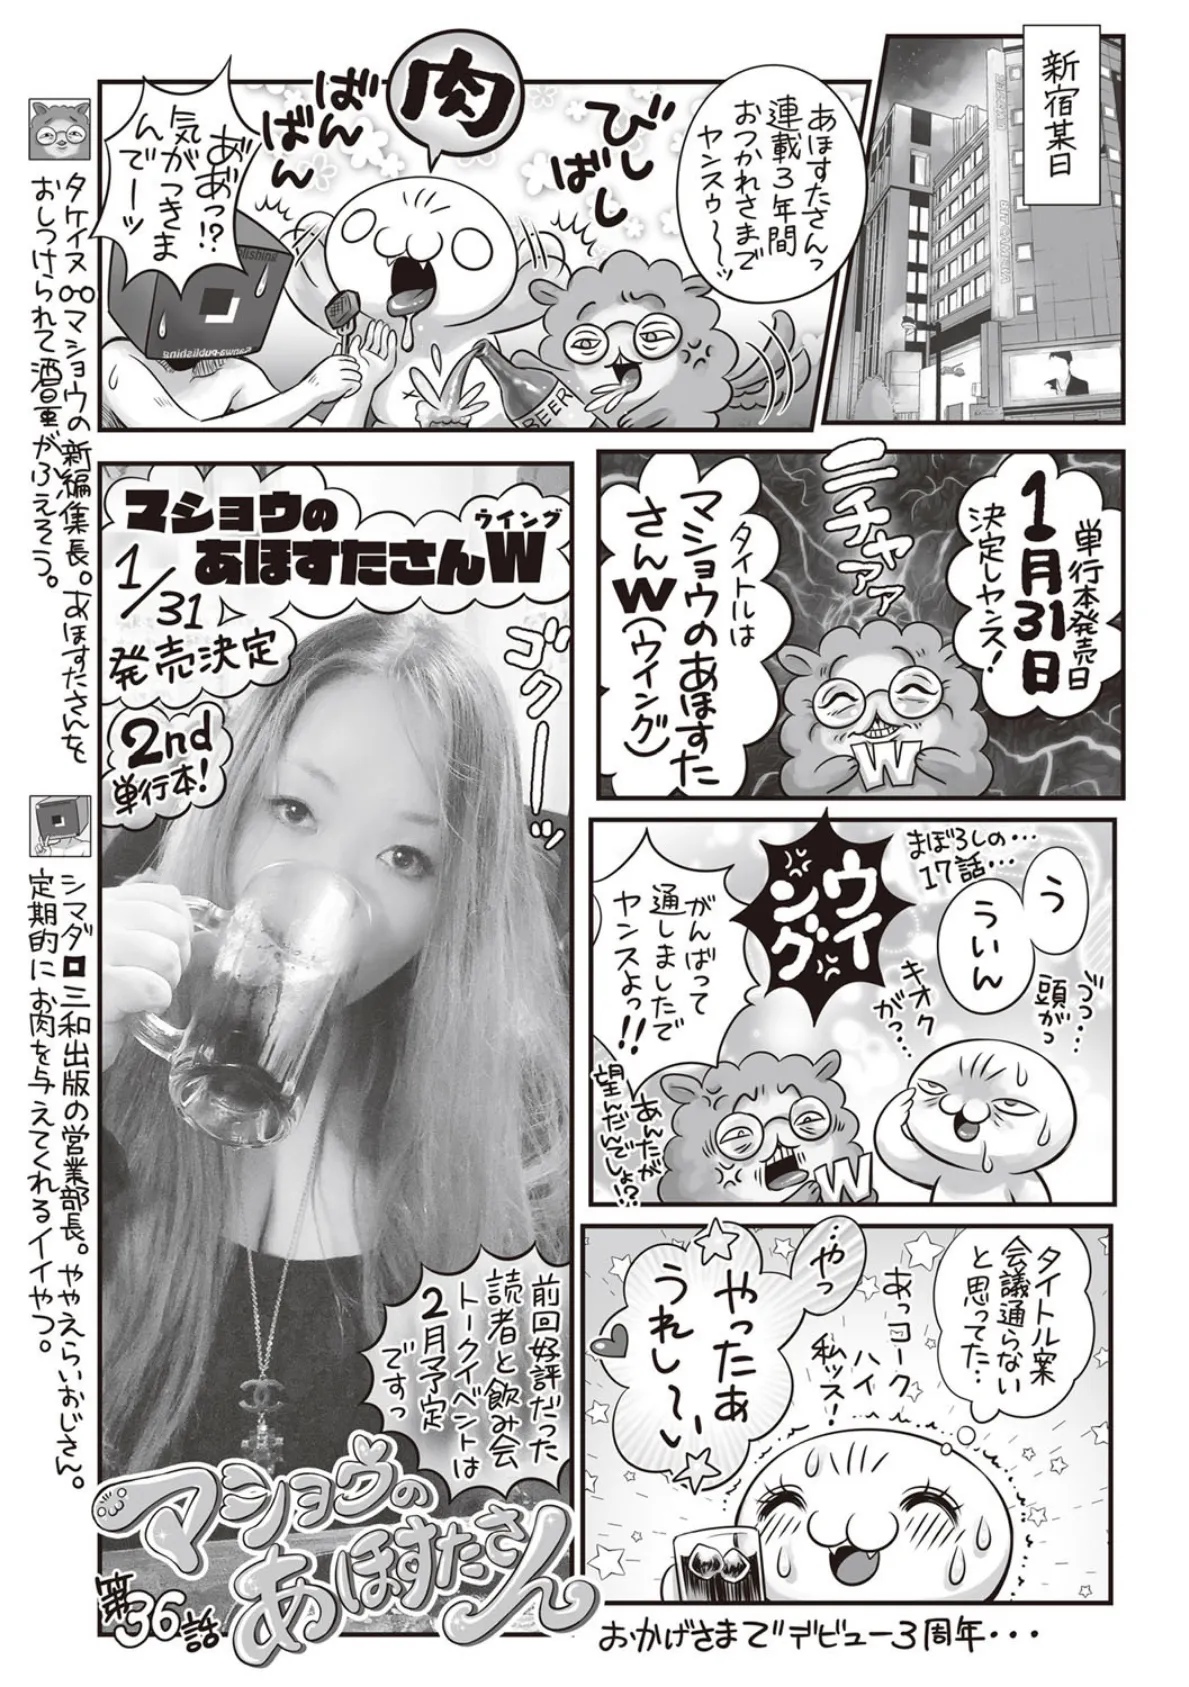 新宿某日
あほすたさんっ
連載3年間
おつかれさまで
ヤンスゥ〜〜ッ
びし
ばし
肉
ばん
ばん
あ゛っ
あ゛っ!?
気がつきま
んでーッ
BEER
単行本発売日
1月31日
決定しヤンス!
ニチャァァァ
タイトルは
マショウのあほすた
さんW(ウイング)
W
まぼろしの…
17話…
う
ういん
ゔっ…
頭がっ
キオク
がっ…
ウイ
ング
がんばって
通しましたで
ヤンスよっ!!
あんたが
望んだんでしょ!?
W
タイトル案
会議通らない
と思ってた…
あっコーク
ハイ
私ッス!
…やっ
やったぁ
うれし〜い
おかげさまでデビュー3周年・・・
マショウの
あほすたさんW
ウイング
1/31
発売決定
2nd
単行本!
ゴクーーッ
前回好評だった
読者と飲み会
トークイベントは
2月予定
ですっ
マショウの
あほすたさん
第36話
タケイヌ マショウの新編集長。あほすたさんを
おしつけられて酒量がふえそう。
シマダ 三和出版の営業部長。ややえらいおじさん。
定期的にお肉を与えてくれるイイやつ。